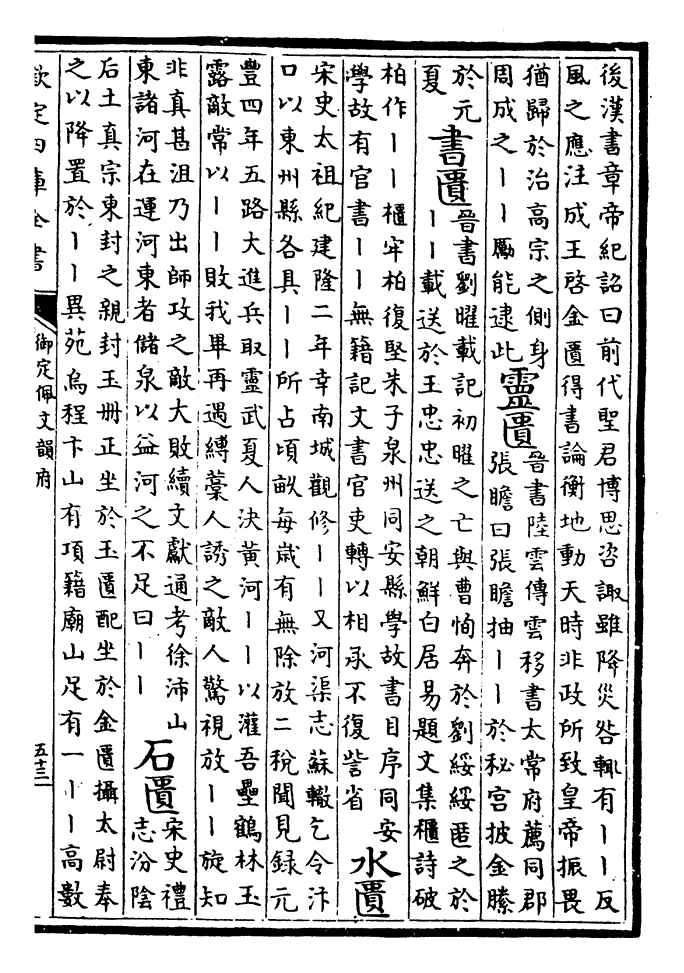 後漢書章帝紀詔曰前代聖君博思咨諏雖降災咎輒有丨丨反
風之應注成王啓金匱得書論衡地動天時非政所致皇帝振畏
猶歸於治高宗之側身
周成之丨丨勵能逮此
靈匱
晉書陸雲傳雲移書太常府薦同郡
張瞻曰張瞻抽丨丨於秘宮披金縢
於元
夏
書匱
晉書劉曜載記初曜之亡與曹恂奔於劉綏綏匿之於
丨丨載送於王忠忠送之朝鮮白居易題文集櫃詩破
柏作丨丨櫃牢柏復堅朱子泉州同安縣學故書目序同安
學故有官書丨丨無籍記文書官吏轉以相承不復訾省
水匱
宋史太祖紀建隆二年幸南城觀修丨丨又河渠志蘇轍乞令汴
口以東州縣各具丨丨所占頃畝每歲有無除放二稅聞見録元
豐四年五路大進兵取靈武夏人決黃河丨丨以灌吾壘鶴林玉
露敵常以丨丨敗我畢再遇縛藁人誘之敵人驚視放丨丨旋知
非真甚沮乃出師攻之敵大敗續文獻通考徐沛山
東諸河在運河東者儲泉以益河之不足曰丨丨
石匱
宋史禮
志汾陰
后土真宗東封之親封玉冊正坐於玉匱配坐於金匱攝太尉奉
之以降置於丨丨異苑烏程卞山有項籍廟山足有一丨丨高數
欽定四庫全書
御定佩文韻府
五十三